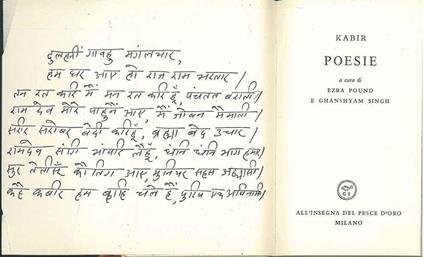 दुलहनीं गावहु मंगलचार,
हम घर आए हो राजा राम भरतार।
तन रत करि मैं मन रत करिहूँ, पंचतत बराती।
राम देव मोरे पाहुनैं आए, मैं जोबन मैंमाती।
सरीर सरोवर बेदी करिहूँ, ब्रह्मा बेद उचार।
रामदेव संगि भांवरि लैहूँ, धंनि धंनि भाग हमार।
सुर तेतीसूँ कौतिग आए, मुनिवर सहस अठ्यासी।
कहै कबीर हम ब्याहि चले हैं, पुरिष एक अविनासी।
KABIR
POESIE
a cura di
EZRA POUND
E GHANSHYAM SINGH
ALL'INSEGNA DEL PESCE D'ORO
MILANO